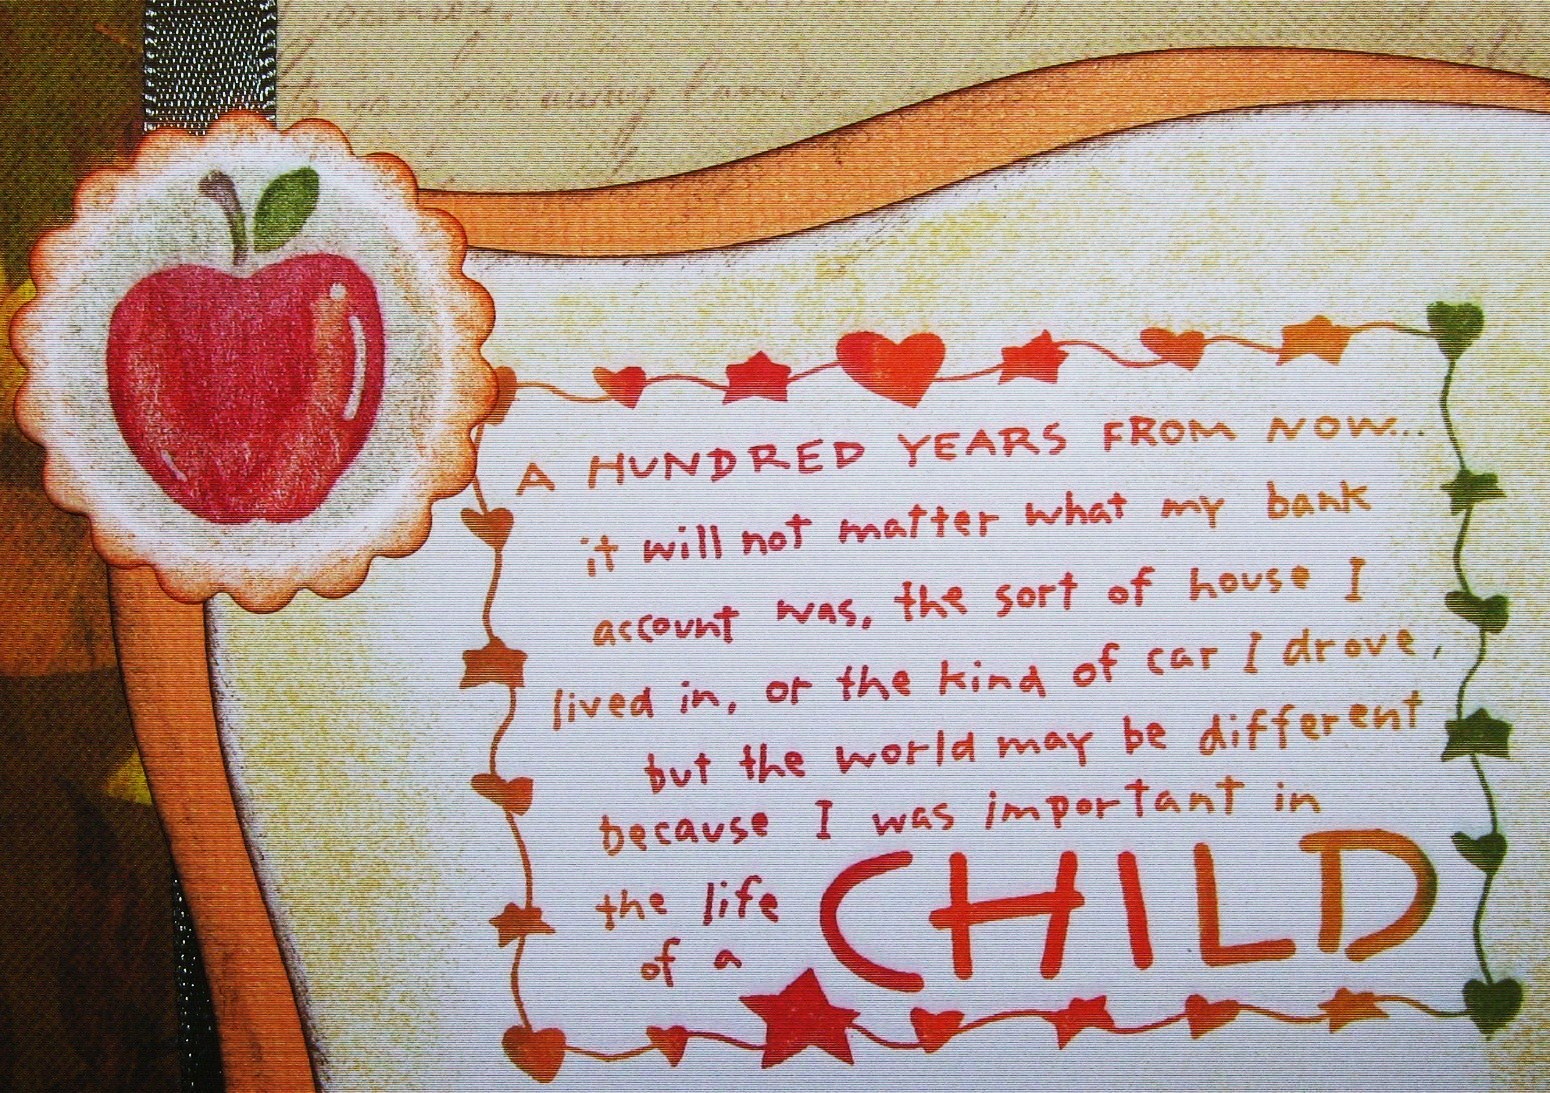 A HUNDRED YEARS FROM NOW...
it will not matter what my bank
account was, the sort of house I
lived in, or the kind of car I drove,
but the world may be different
because I was important in
the life
of a CHILD